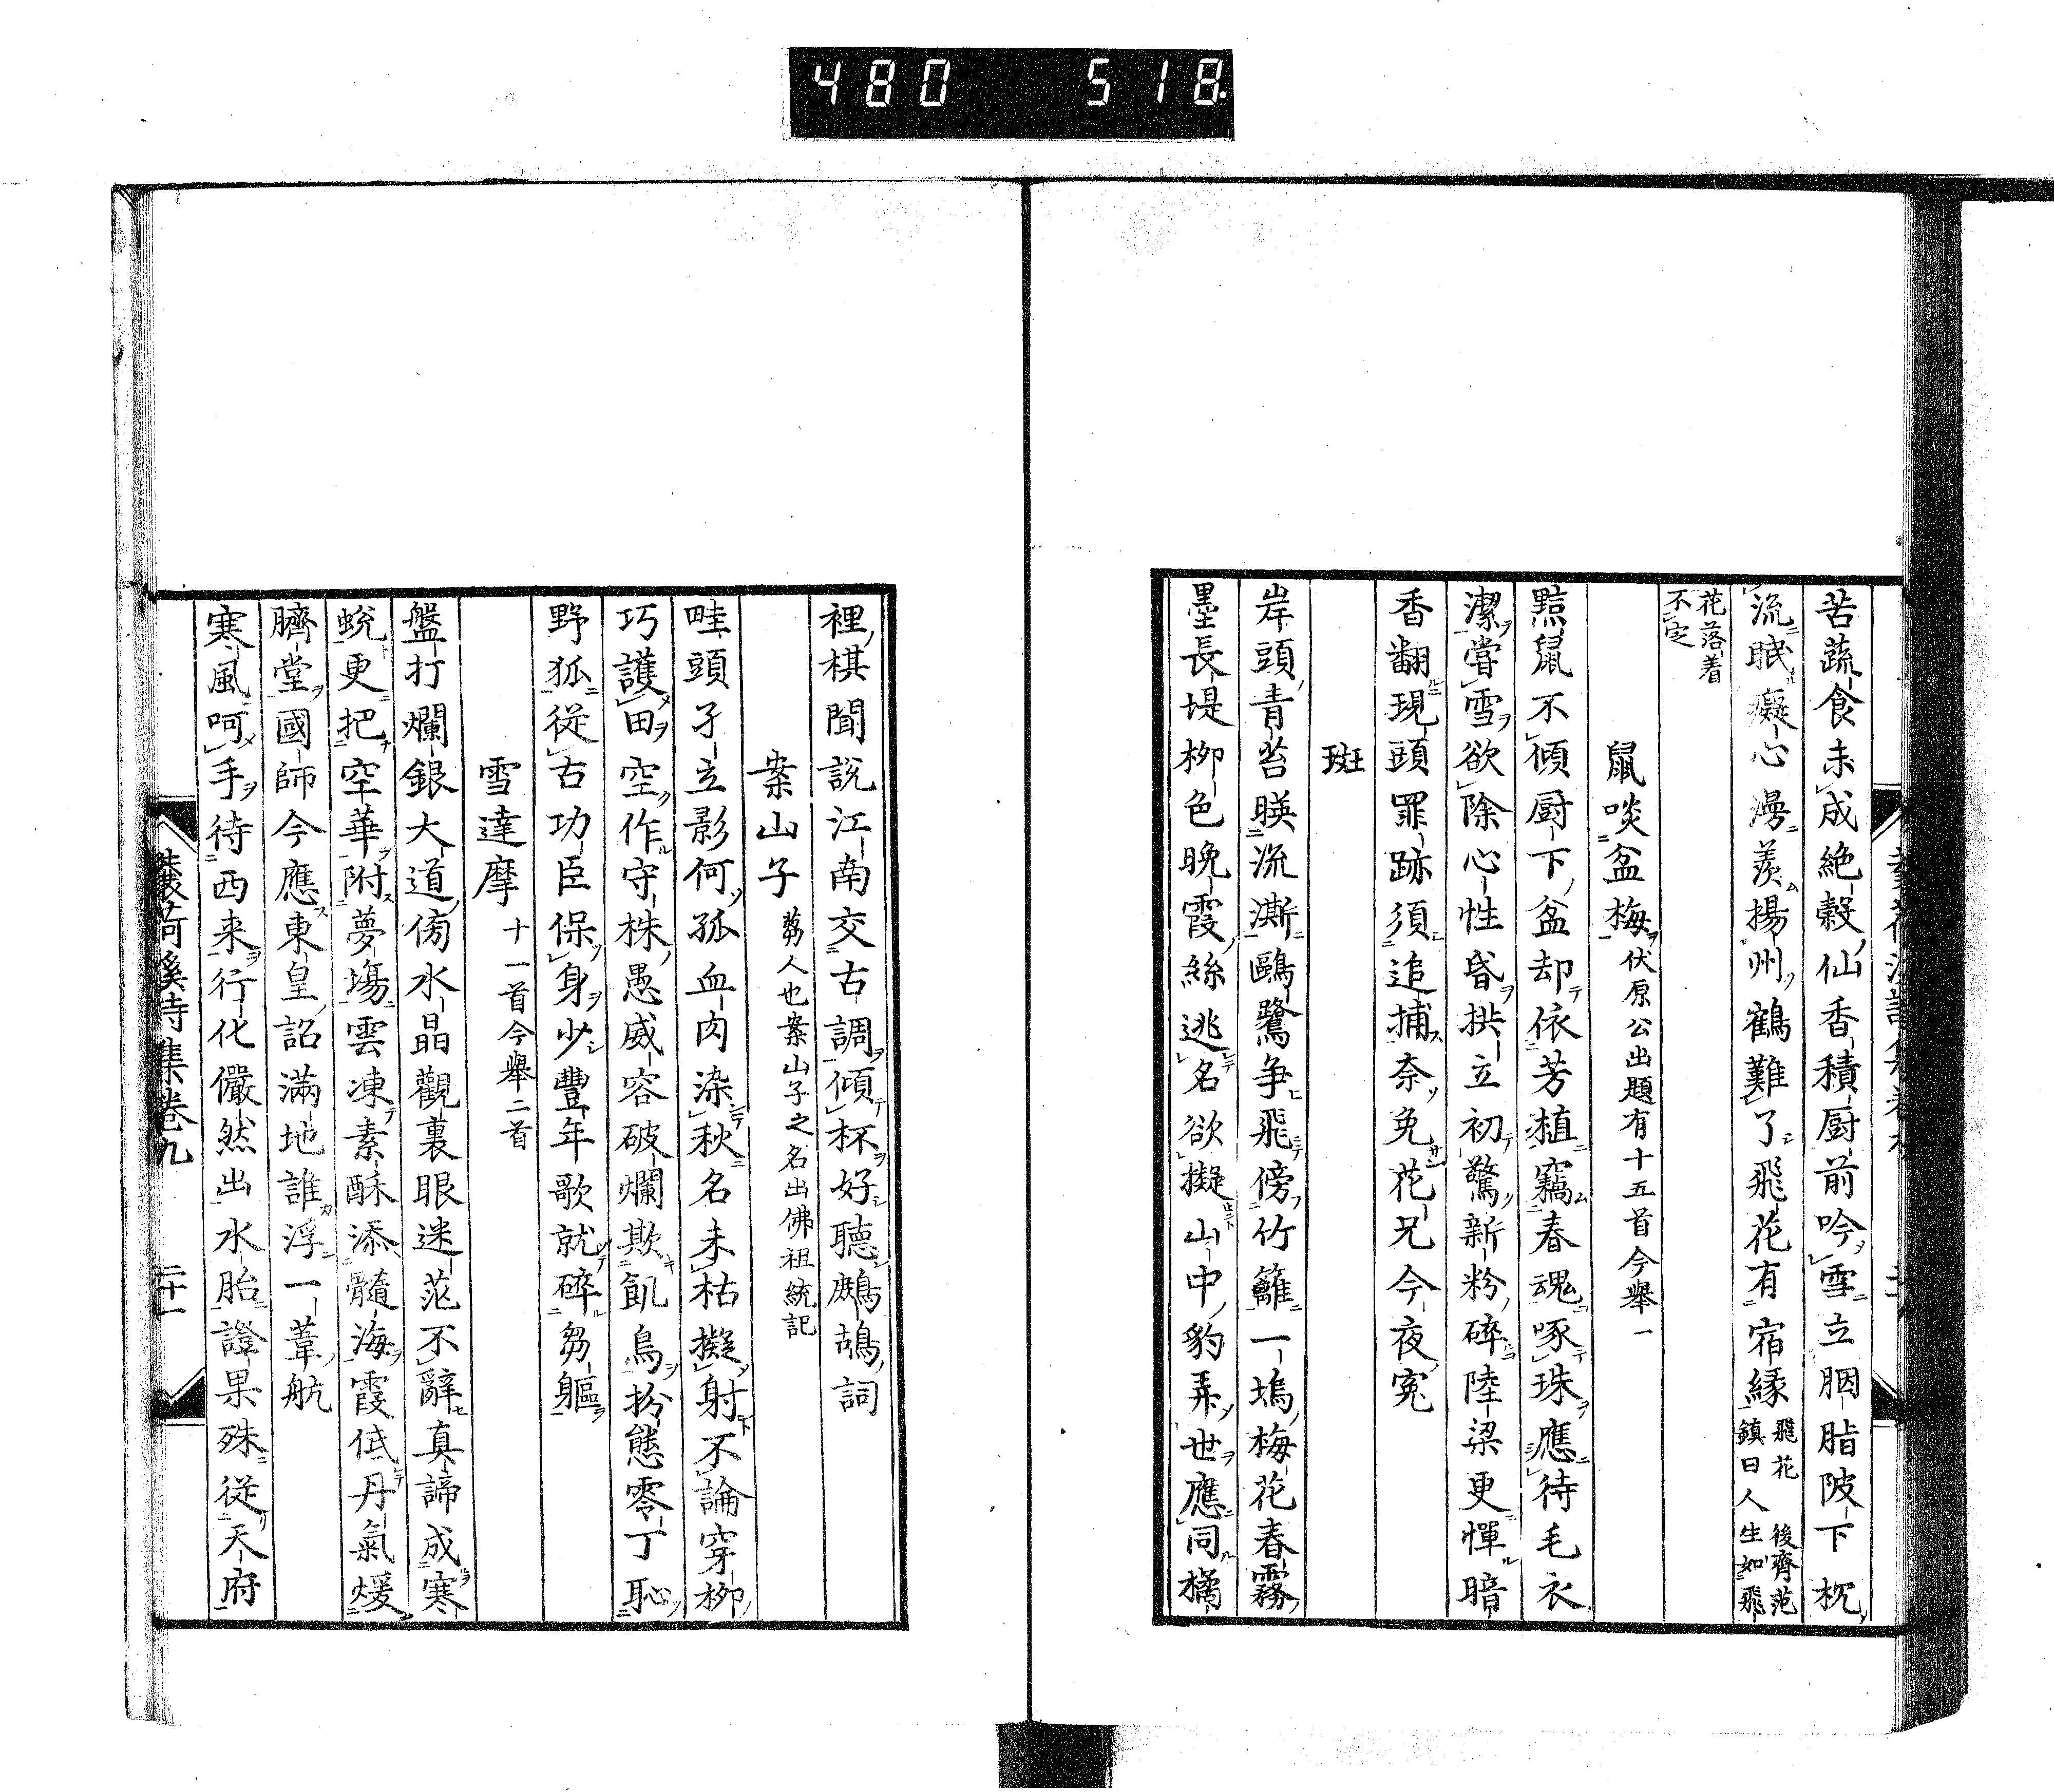 480 518
苦蔬食未成絶穀仙香積厨前吟雪立胭脂陂下枕
流眠癡心漫羨揚州鶴難了飛花有宿縁 飛花鎮日人 後齊范生如飛
花落着不定
鼠啖盆梅 伏原公出題有十五首今舉一
黠鼠不傾厨下盆却依芳植竊春魂啄珠應待毛衣
潔嘗雪欲除心性昏拱立初驚新粉碎陸梁更憚暗
香翻現頭罪跡須追捕奈免花兄今夜寃
斑
岸頭青苔暎流澌鷗鷺争飛傍竹籬一塢梅花春霧
墨長堤柳色晩霞絲逃名欲擬山中豹弄世應同橘
裡棋聞說江南交古調傾杯好聽鷓鴣詞
案山子 蒭人也案山子之名出佛祖統記
畦頭孑立影何孤血肉染秋名未枯擬射不論穿柳
巧護田空作守株愚威容破爛欺飢鳥扮態零丁恥
野狐従古功臣保身少豐年歌就碎芻軀
雪達摩 十一首今舉二首
盤打爛銀大道傍水晶觀裏眼迷茫不辭真諦成寒
蛻更把空華附夢塲雲凍素酥添髓海霞低丹氣煖
臍堂國師今應東皇詔滿地誰浮一葦航
寒風呵手待西来行化儼然出水胎證果殊従天府
荷溪詩集巻九 二十一